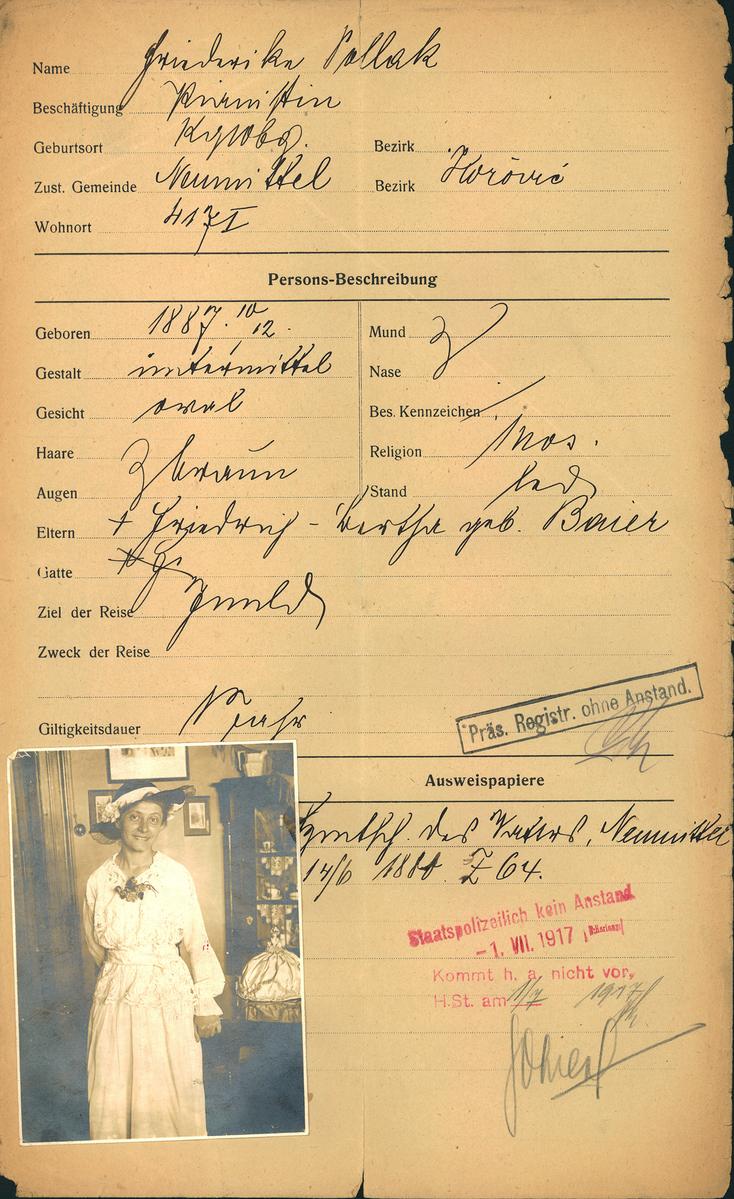 Name Friederike Pollak
Beschäftigung Pianistin
Geburtsort Bezirk
Zust. Gemeinde Neumittel Bezirk Hořovic
Wohnort 417 I
Persons-Beschreibung
Geboren 1887. 10/12. Mund
Gestalt untermittel Nase
Gesicht oval Bes. Kennzeichen
Haare Religion Mos.
braun
Augen Stand led
Eltern + Friedrich - Bertha geb. Baier
Gatte
Ziel der Reise Inld
Zweck der Reise
Giltigkeitsdauer 1 Jahr
Präs. Registr. ohne Anstand.
Ausweispapiere
des Vaters, Neumittel
14/6 Z 64.
Staatspolizeilich kein Anstand
-1. VII. 1917
Kommt h. a. nicht vor,
H.St. am 1/7 1917